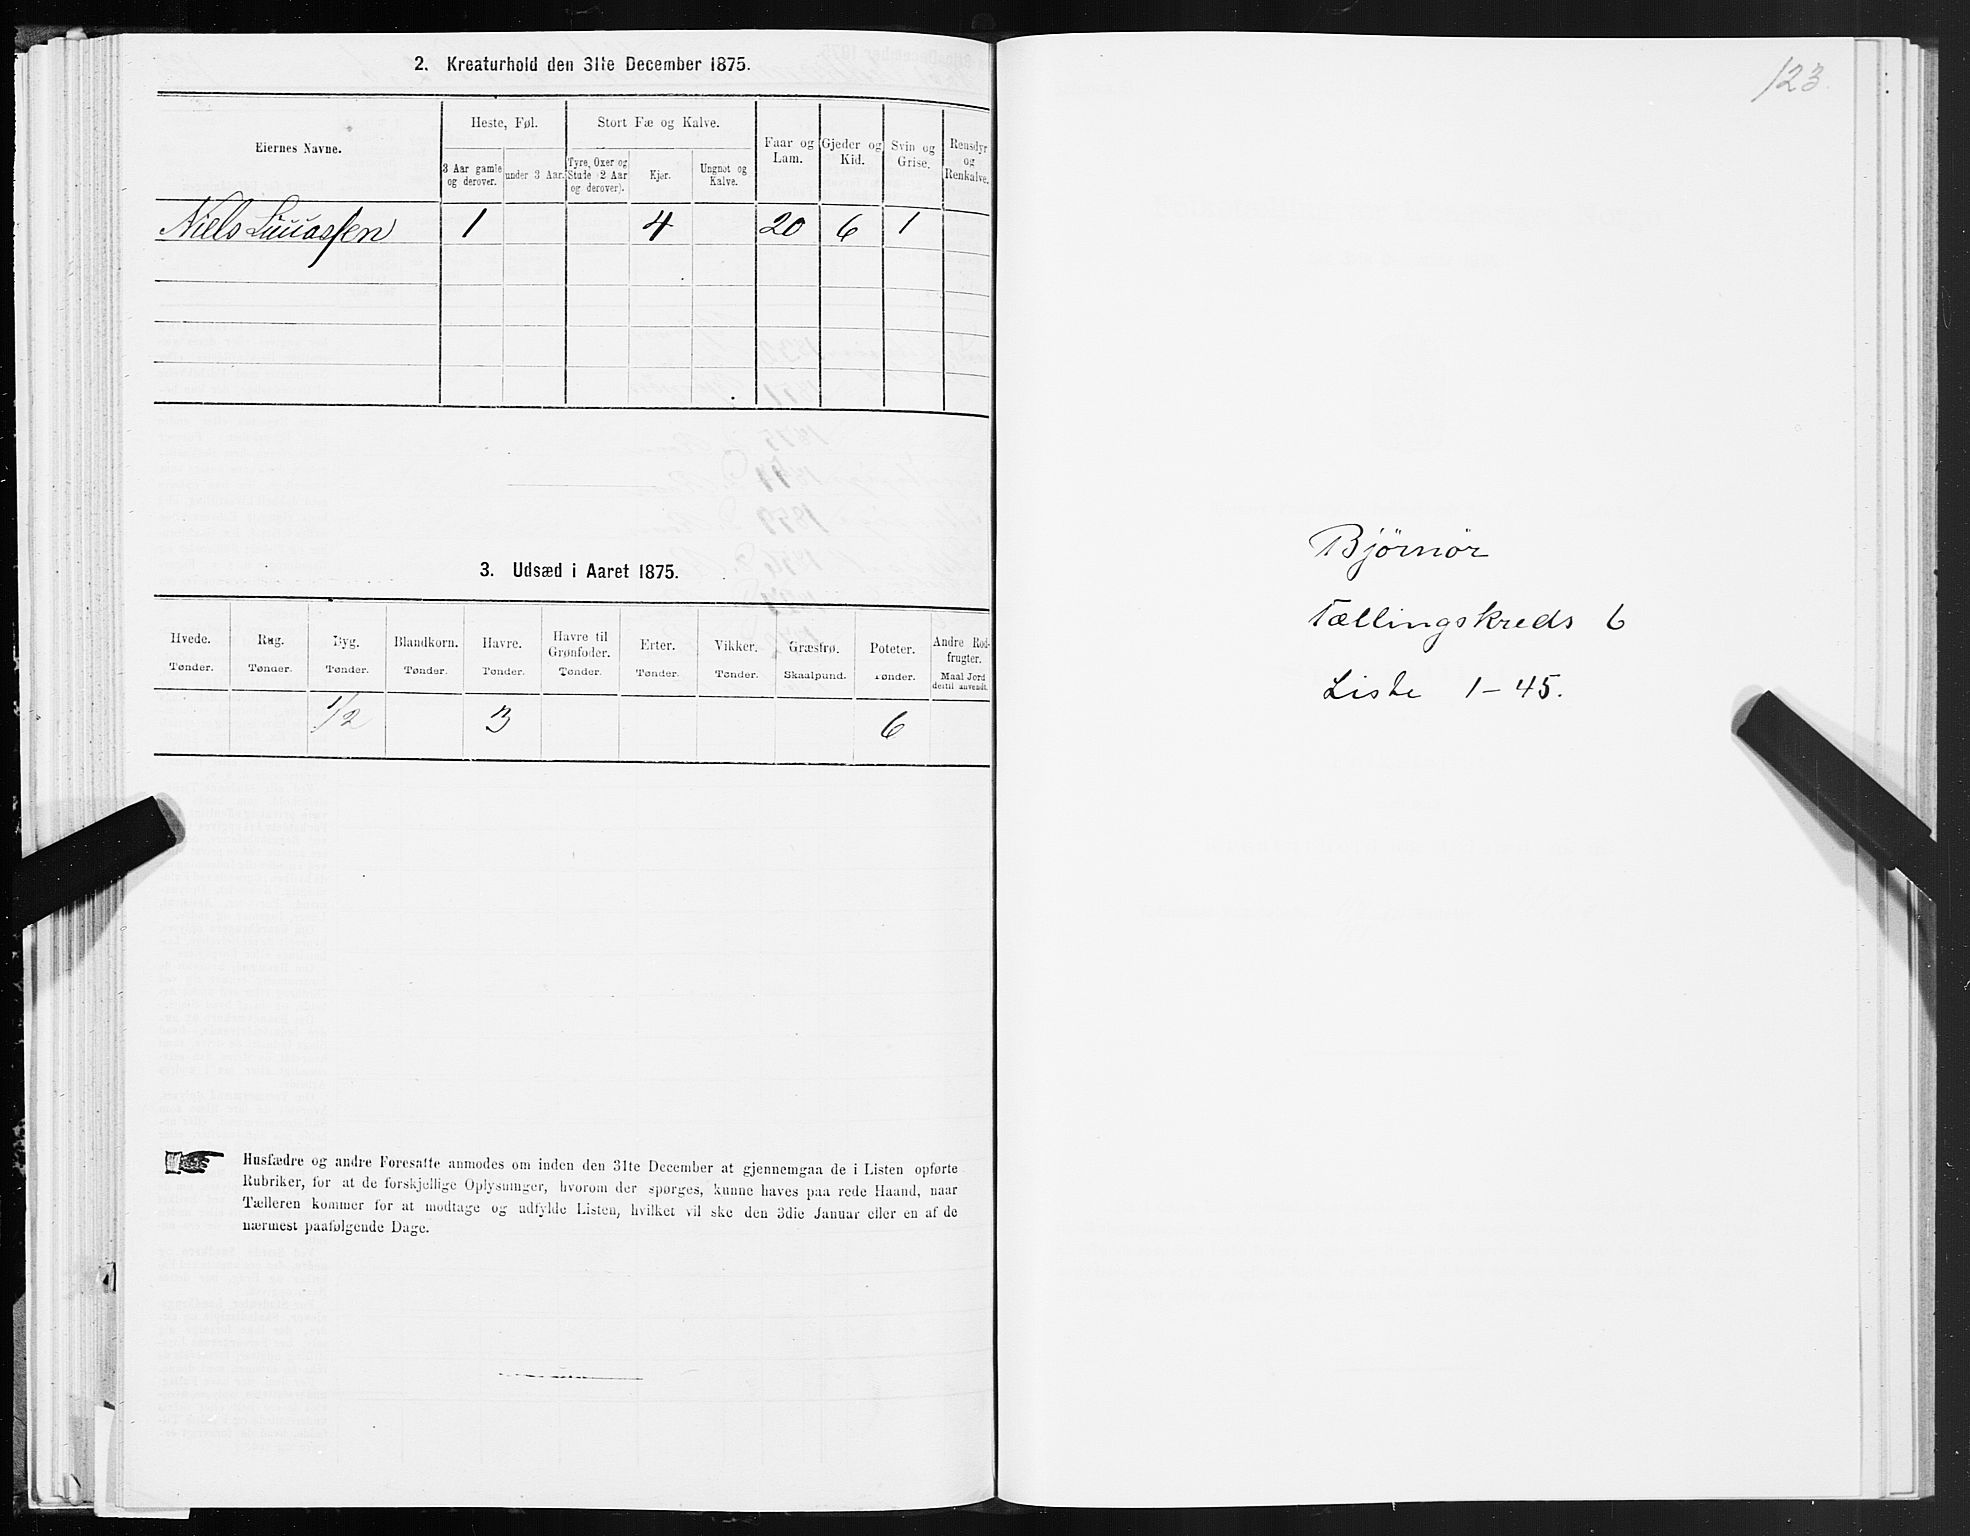 2. Kreaturhold den 31te December 1875.
Eiernes Navne.
Heste, Føl.
Stort Fæ og Kalve.
Faar og Lam.
Gjeder og Kid.
Svin og Grise.
Rensdyr og Renkalve.
3 Aar gamle og derover.
under 3 Aar.
Tyre, Oxer og Stude (2 Aar og derover).
Kjør.
Ungnøt og Kalve.
Niels 1 4 20 6 1
3. Udsæd i Aaret 1875.
Hvede. Rug. Byg. Blandkorn. Havre. Havre til Grønfoder. Erter. Vikker. Græsfrø. Poteter. Andre Rodfrugter.
Tønder. Tønder. Tønder. Tønder. Tønder. Tønder. Tønder. Tønder. Skaalpund. Tønder. Maal Jord dertil anvendt.
1/2 3 6
Husfædre og andre Foresatte anmodes om inden den 31te December at gjennemgaa de i Listen opførte
Rubriker, for at de forskjellige Oplysninger, hvorom der spørges, kunne haves paa rede Haand, naar
Tælleren kommer for at modtage og udfylde Listen, hvilket vil ske den 3die Januar eller en af de
nærmest paafølgende Dage.
123.
Bjørnør
Tællingskreds 6
Liste 1-45.